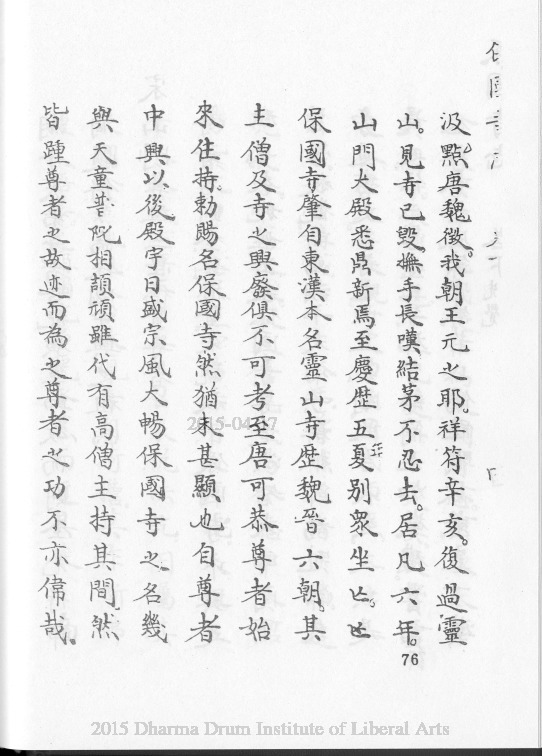 汲黯唐魏徵我朝王元之耶。祥符辛亥。復過靈
山。見寺已毀撫手長嘆結茅不忍去。居凡六年。
山門大殿悉鼎新焉至慶歷五年夏別衆坐亡。
保國寺肇自東漢本名靈山寺歷魏晉六朝。其
主僧及寺之興廢俱不可考至唐可恭尊者始
來住持。勅賜名保國寺然猶未甚顯也自尊者
中興以後殿宇日盛宗風大暢保國寺之名幾
與天童普陀相頡頏雖代有高僧主持其間。然
皆踵尊者之故迹而為之尊者之功不亦偉哉。
76
2015-04-27
2015 Dharma Drum Institute of Liberal Arts